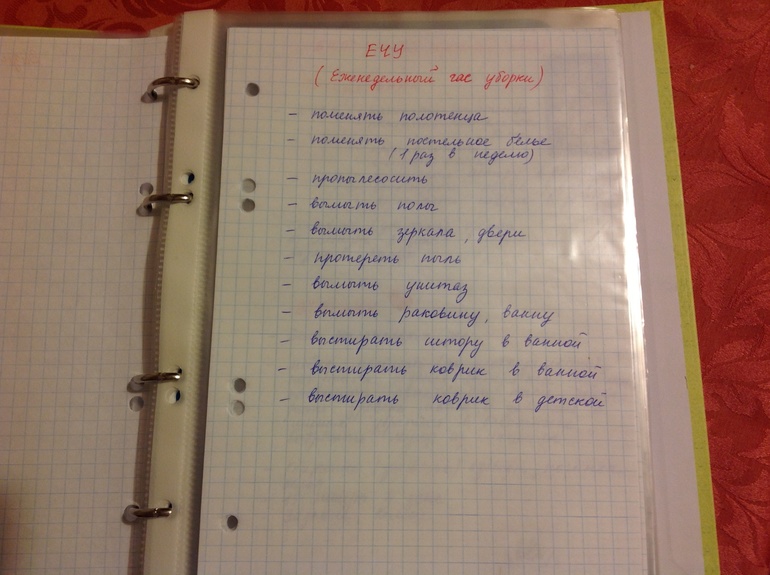 ЕЧУ
(Еженедельный час уборки)
- поменять полотенца
- поменять постельное белье
(1 раз в неделю)
- пропылесосить
- вымыть полы
- вымыть зеркала, двери
- протереть пыль
- вымыть унитаз
- вымыть раковину, ванну
- выстирать штору в ванной
- выстирать коврик в ванной
- выстирать коврик в детской